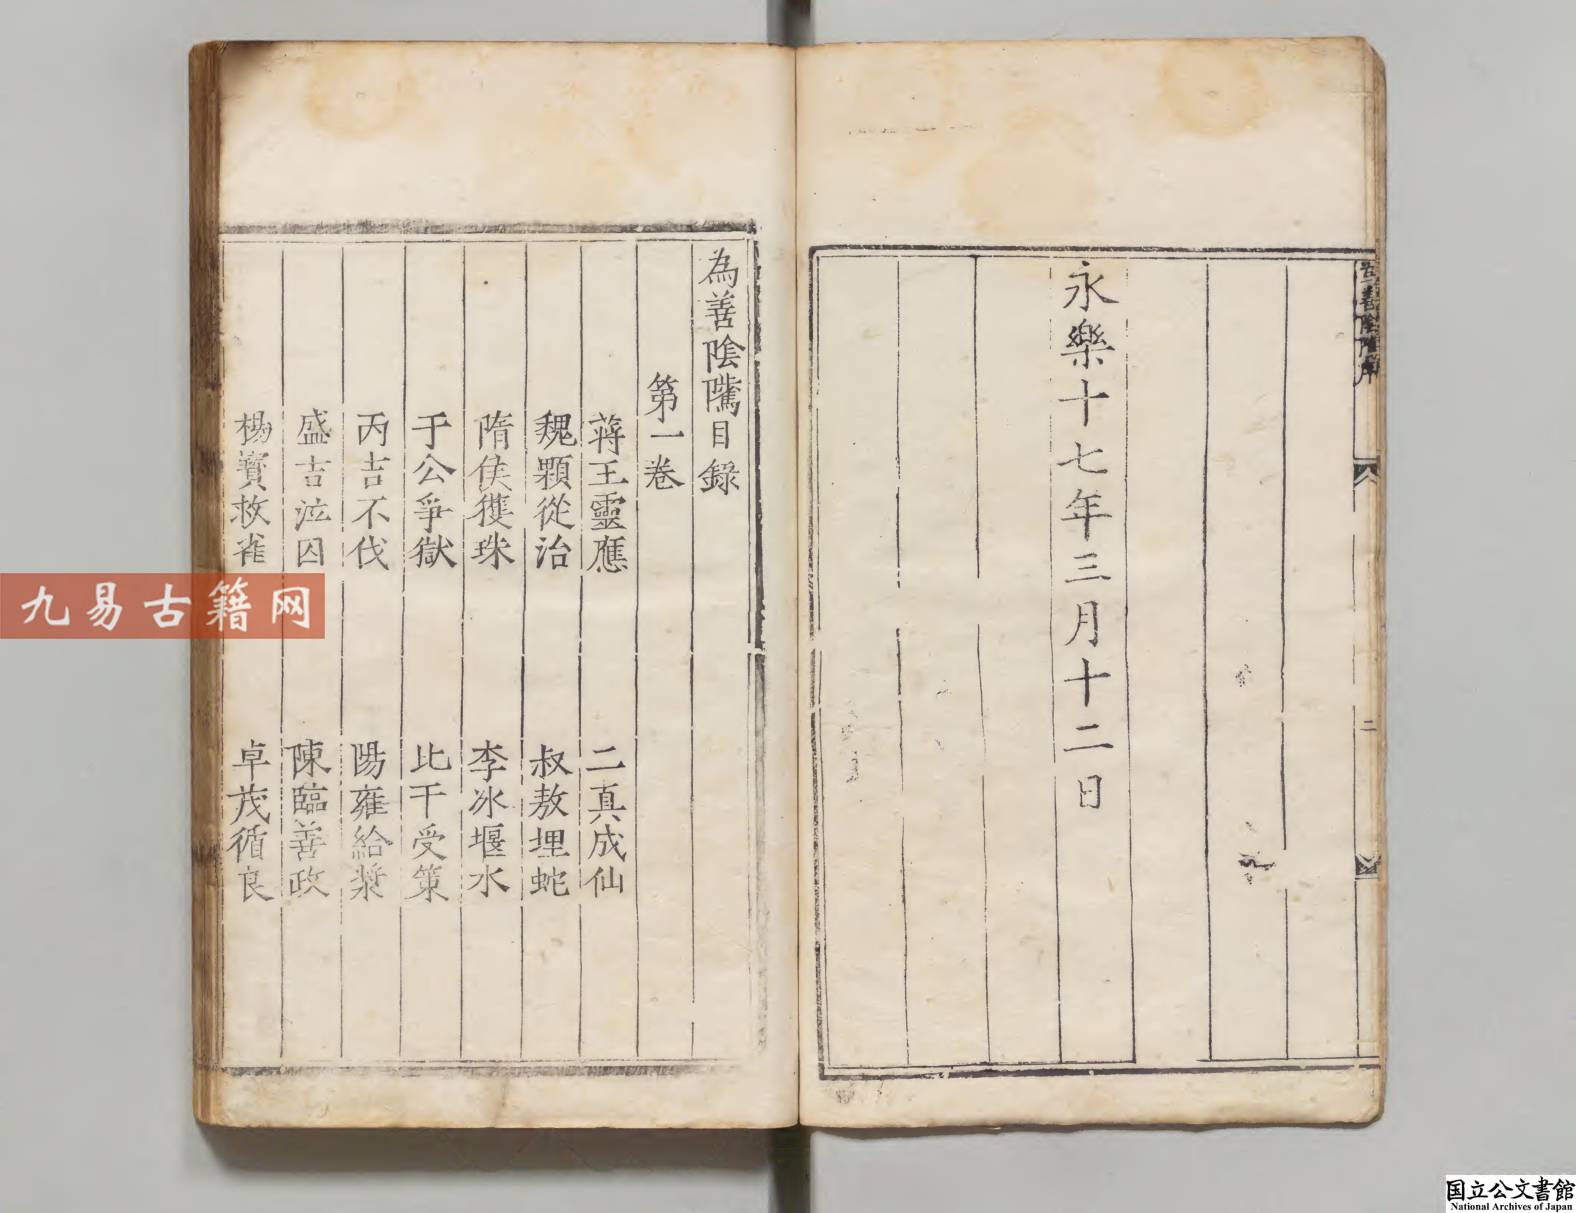 為善陰隲序
二
永樂十七年三月十二日
為善陰隲目録
第一卷
蒋王靈應
二真成仙
魏顆從治
叔敖埋蛇
隋侯獲珠
李冰堰水
于公爭獄
比干受策
丙吉不伐
陽雍給漿
盛吉泣囚
陳臨善政
楊寳救雀
卓茂循良
九易古籍网
国立公文書館
National Archives of Japan